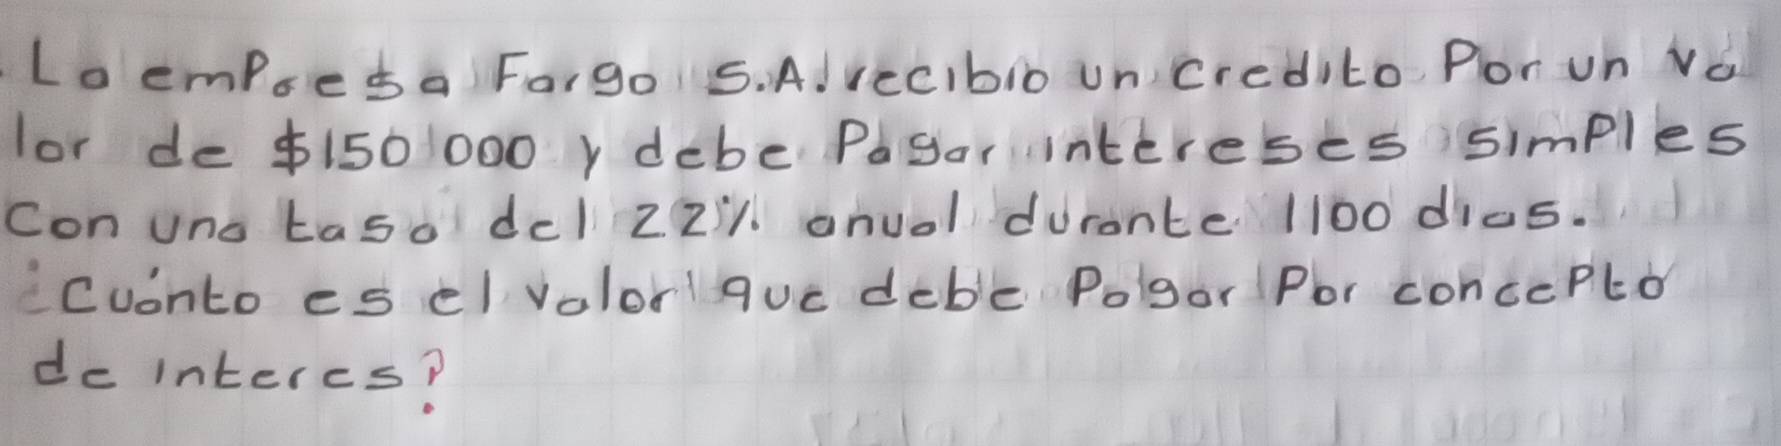 La empresa Fargo S.A. recibio un credito Por un va
lor de $150 000 y debe Pagar intereses simples
Con una tasa del 22% anual durante 1100 dias.
¿Cuánto es el valor que debe Pagar Por concepto
de interes?